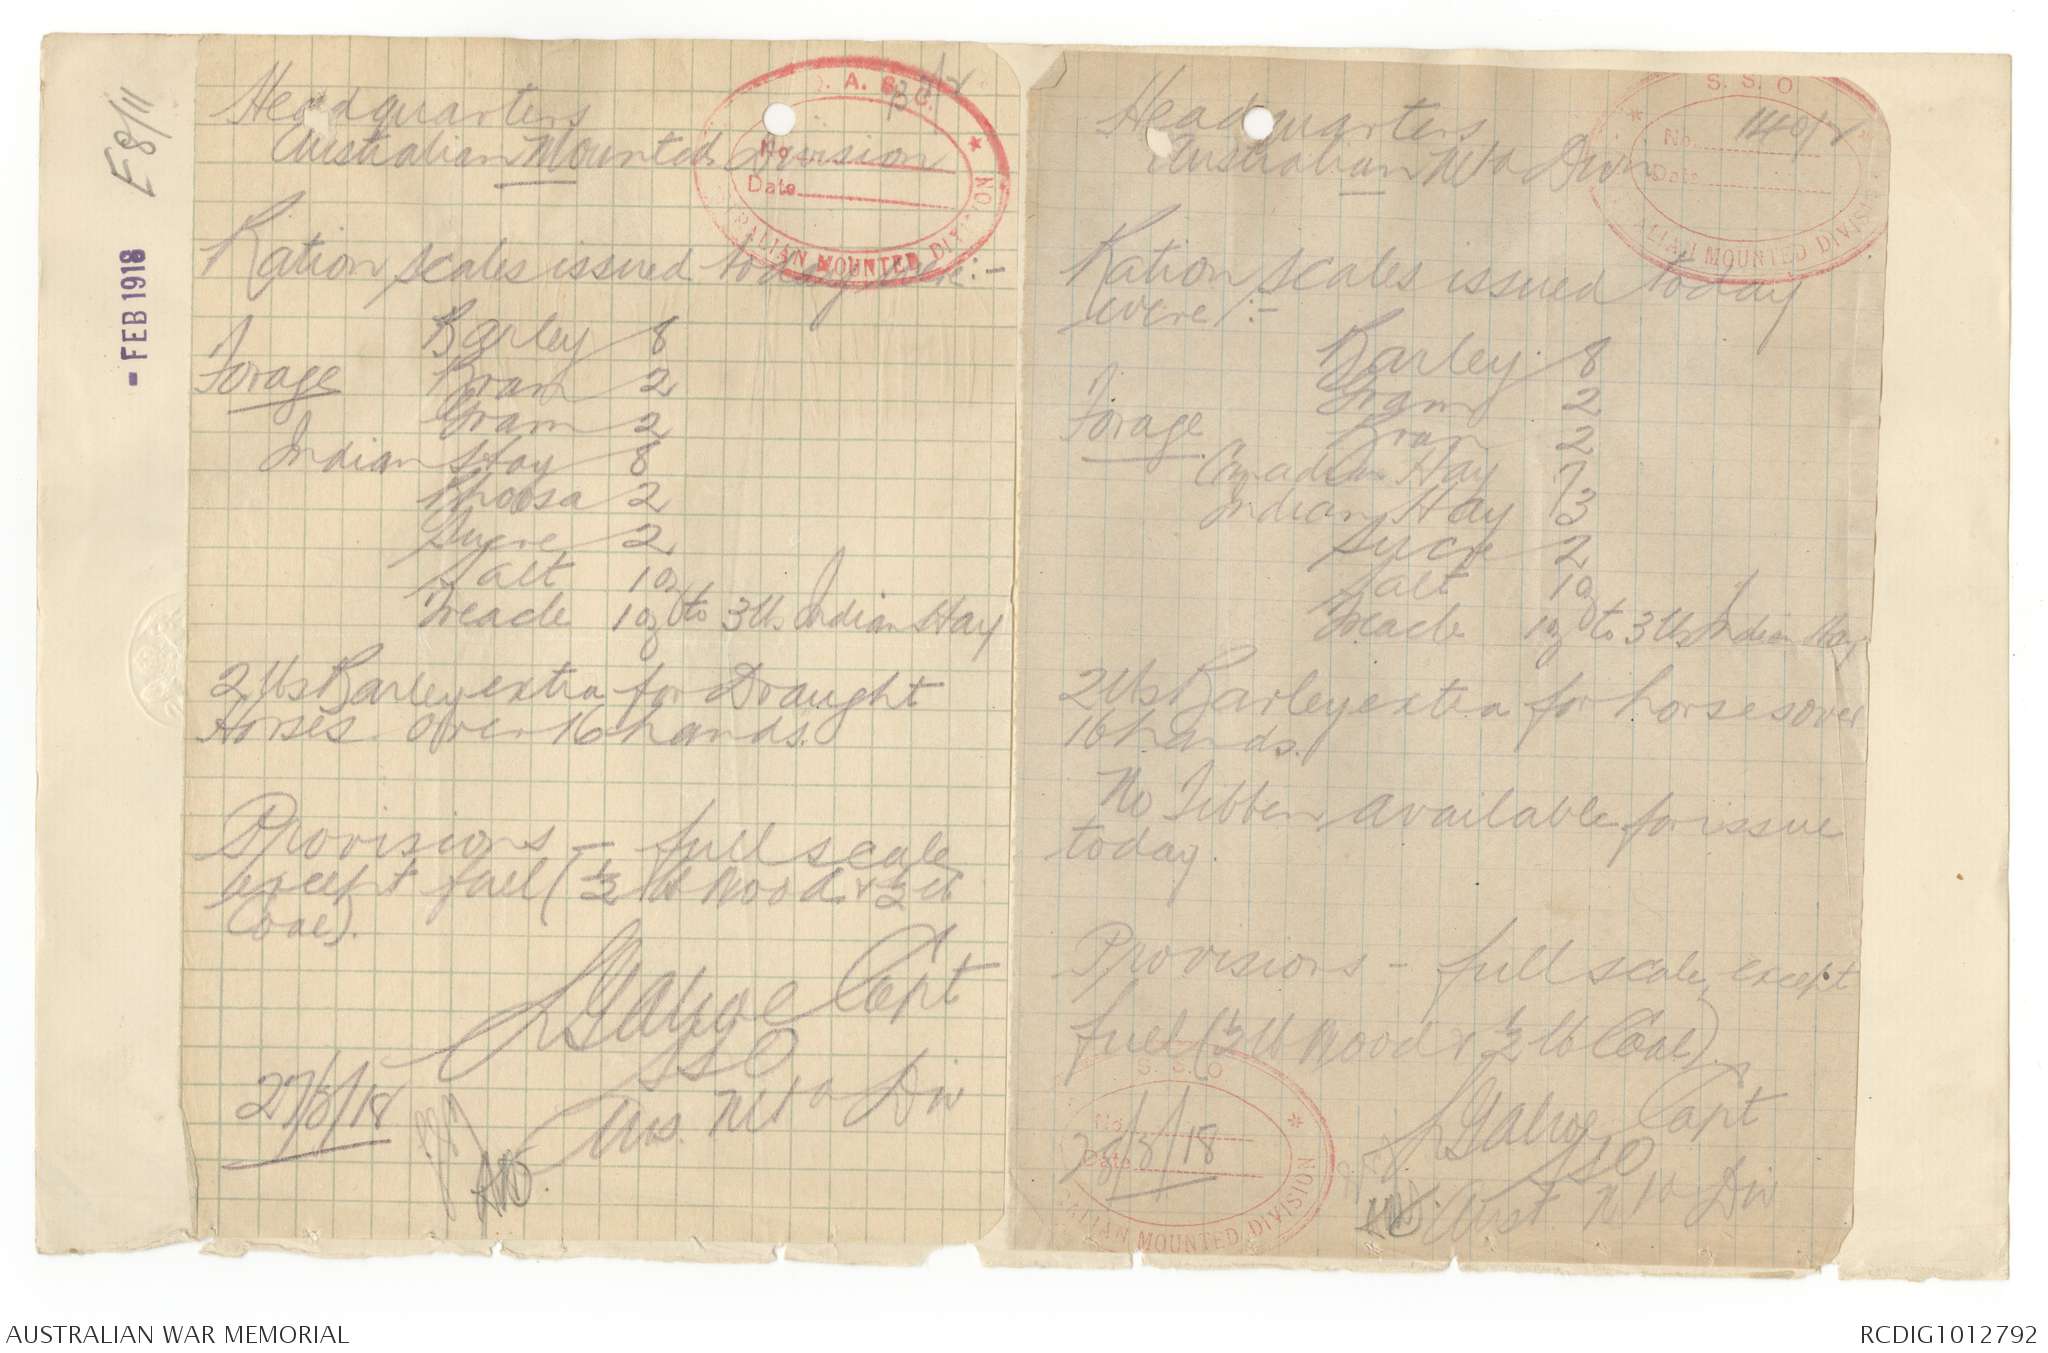 E 8/11
- FEB 1918
D. A. S. C.
No.
Date
AUSTRALIAN MOUNTED DIVISION
Headquarters
Australian Mounted Division
Ration scales issued today were:-
Barley 8
Forage Bran 2
Gram 2
Indian Hay 8
Bhoosa 2
Sucre 2
Salt 1 oz
Treacle 1 oz to 3 lb. Indian Hay
2 lbs Barley extra for Draught
Horses over 16 hands.
Provisions - full scale
except fuel (½ lb Wood & ½ lb
Coal).
Capt
SSO
27/8/18 Aus. Mtd Div
S. S. O
No. 140/2
Date
ALIAN MOUNTED DIVISION
Headquarters
Australian Mtd Divn
Ration scales issued today
were:-
Barley 8
Gram 2
Forage Bran 2
Canadian Hay 7
Indian Hay 3
Sucre 2
Salt 1 oz
Treacle 1 oz to 3 lbs Indian Hay
2 lbs Barley extra for horses over
16 hands.
No Tibben available for issue
today.
Provisions - full scale, except
fuel (½ lb Wood & ½ lb Coal).
Capt
SSO
Aust Mtd Div
S. S. O
No.
Date 28/8/18
RALIAN MOUNTED DIVISION
AUSTRALIAN WAR MEMORIAL
RCDIG1012792